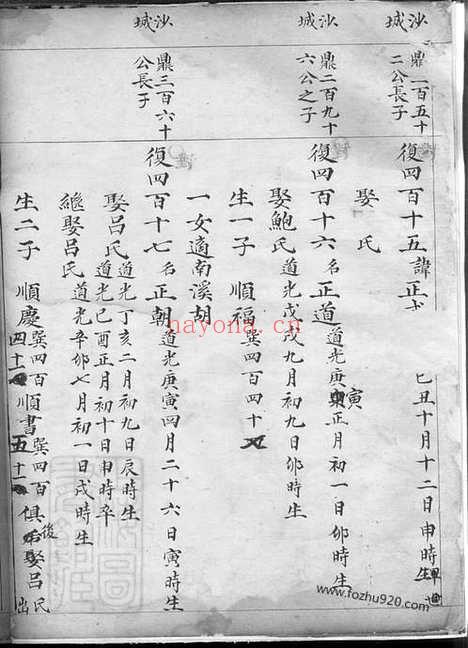 沙城
鼎一百五十二公長子
復四百十五諱正才
己丑十月十二日申時生
娶氏
沙城
鼎二百九十六公之子
復四百十六名正道道光庚寅正月初一日卯時生
娶鮑氏道光戊戌九月初九日卯時生
生一子順福巽四百四十
一女適南溪胡
沙城
鼎三百六十公長子
復四百十七名正朝道光庚寅四月二十六日寅時生
娶呂氏道光丁亥二月初九日辰時生
道光己酉正月初十日申時卒
繼娶呂氏道光辛卯七月初一日戌時生
生二子順慶巽四百四十一順書巽四百五十一俱後娶呂氏出
hayona.cn
www.fozhu920.com